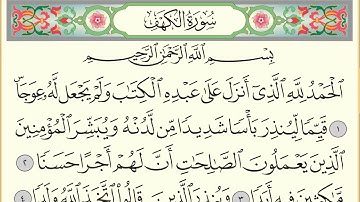 سُورَةُ الكَهْفِ
بِسْمِ اللَّهِ الرَّحْمَٰنِ الرَّحِيمِ
الْحَمْدُ لِلَّهِ الَّذِي أَنزَلَ عَلَىٰ عَبْدِهِ الْكِتَابَ وَلَمْ يَجْعَل لَّهُ عِوَجًا ۜ
١ قَيِّمًا لِّيُنذِرَ بَأْسًا شَدِيدًا مِّن لَّدُنْهُ وَيُبَشِّرَ الْمُؤْمِنِينَ
الَّذِينَ يَعْمَلُونَ الصَّالِحَاتِ أَنَّ لَهُمْ أَجْرًا حَسَنًا ٢
مَّاكِثِينَ فِيهِ أَبَدًا ٣ وَيُنذِرَ الَّذِينَ قَالُوا اتَّخَذَ اللَّهُ وَلَدًا ٤